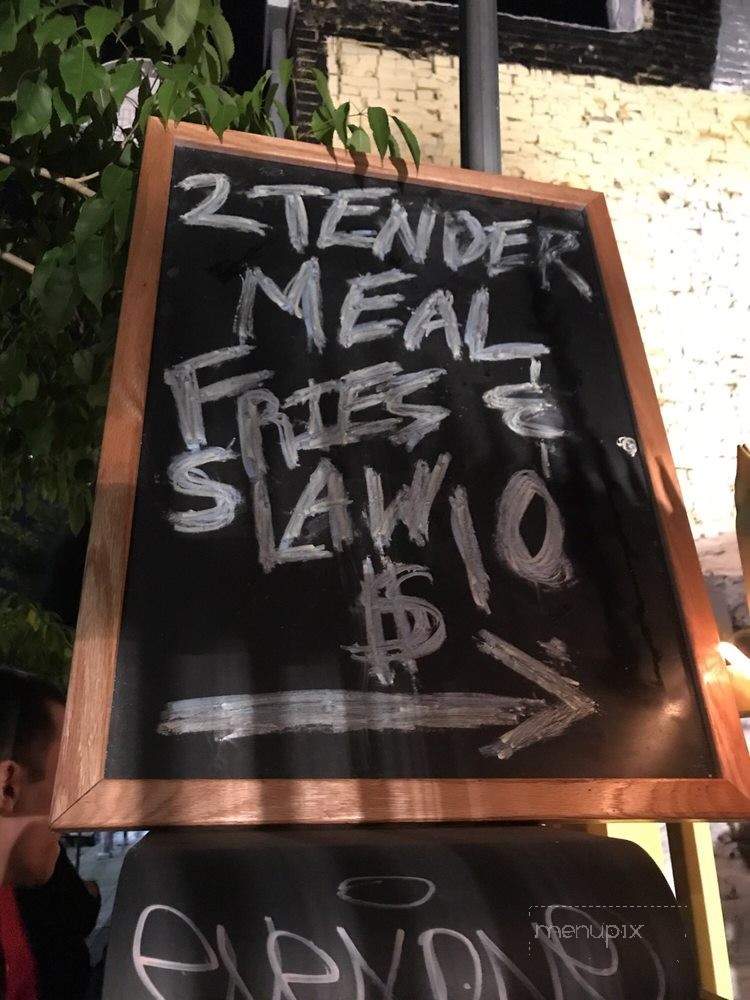 2 TENDER
MEAL
FRIES &
SLAW 10
$
menupix